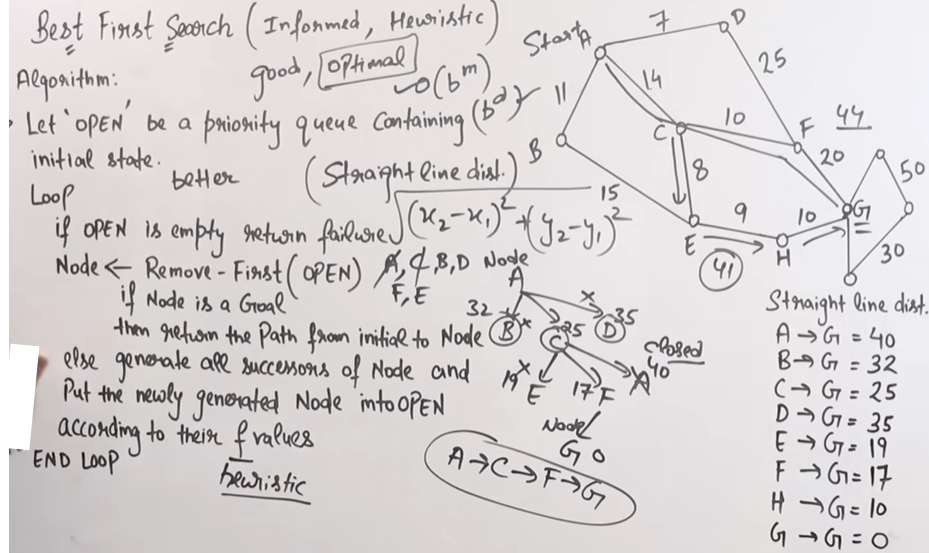 Best First Search (Informed, Heuristic)
Algorithm:
good, Optimal
O(b^m)
(b^d)
Let 'OPEN' be a priority queue containing
initial state.
better
(Straight line dist.)
Loop
√(x₂-x₁)²+(y₂-y₁)²
if OPEN is empty return failure
Node ← Remove-First(OPEN)
A, C, B, D Node
F, E
if Node is a Goal
then return the Path from initial to Node
else generate all successors of Node and
Put the newly generated Node into OPEN
according to their f values
END LOOP
heuristic
A
32 B
C 25
D 35
x
x
closed
19 x E
17 F
40
A
Node
G 0
A→C→F→G
Start A
7
D
25
11
14
10
F
44
C
B
8
20
50
15
E
9
H
10
G
30
41
Straight line dist.
A → G = 40
B → G = 32
C → G = 25
D → G = 35
E → G = 19
F → G = 17
H → G = 10
G → G = 0